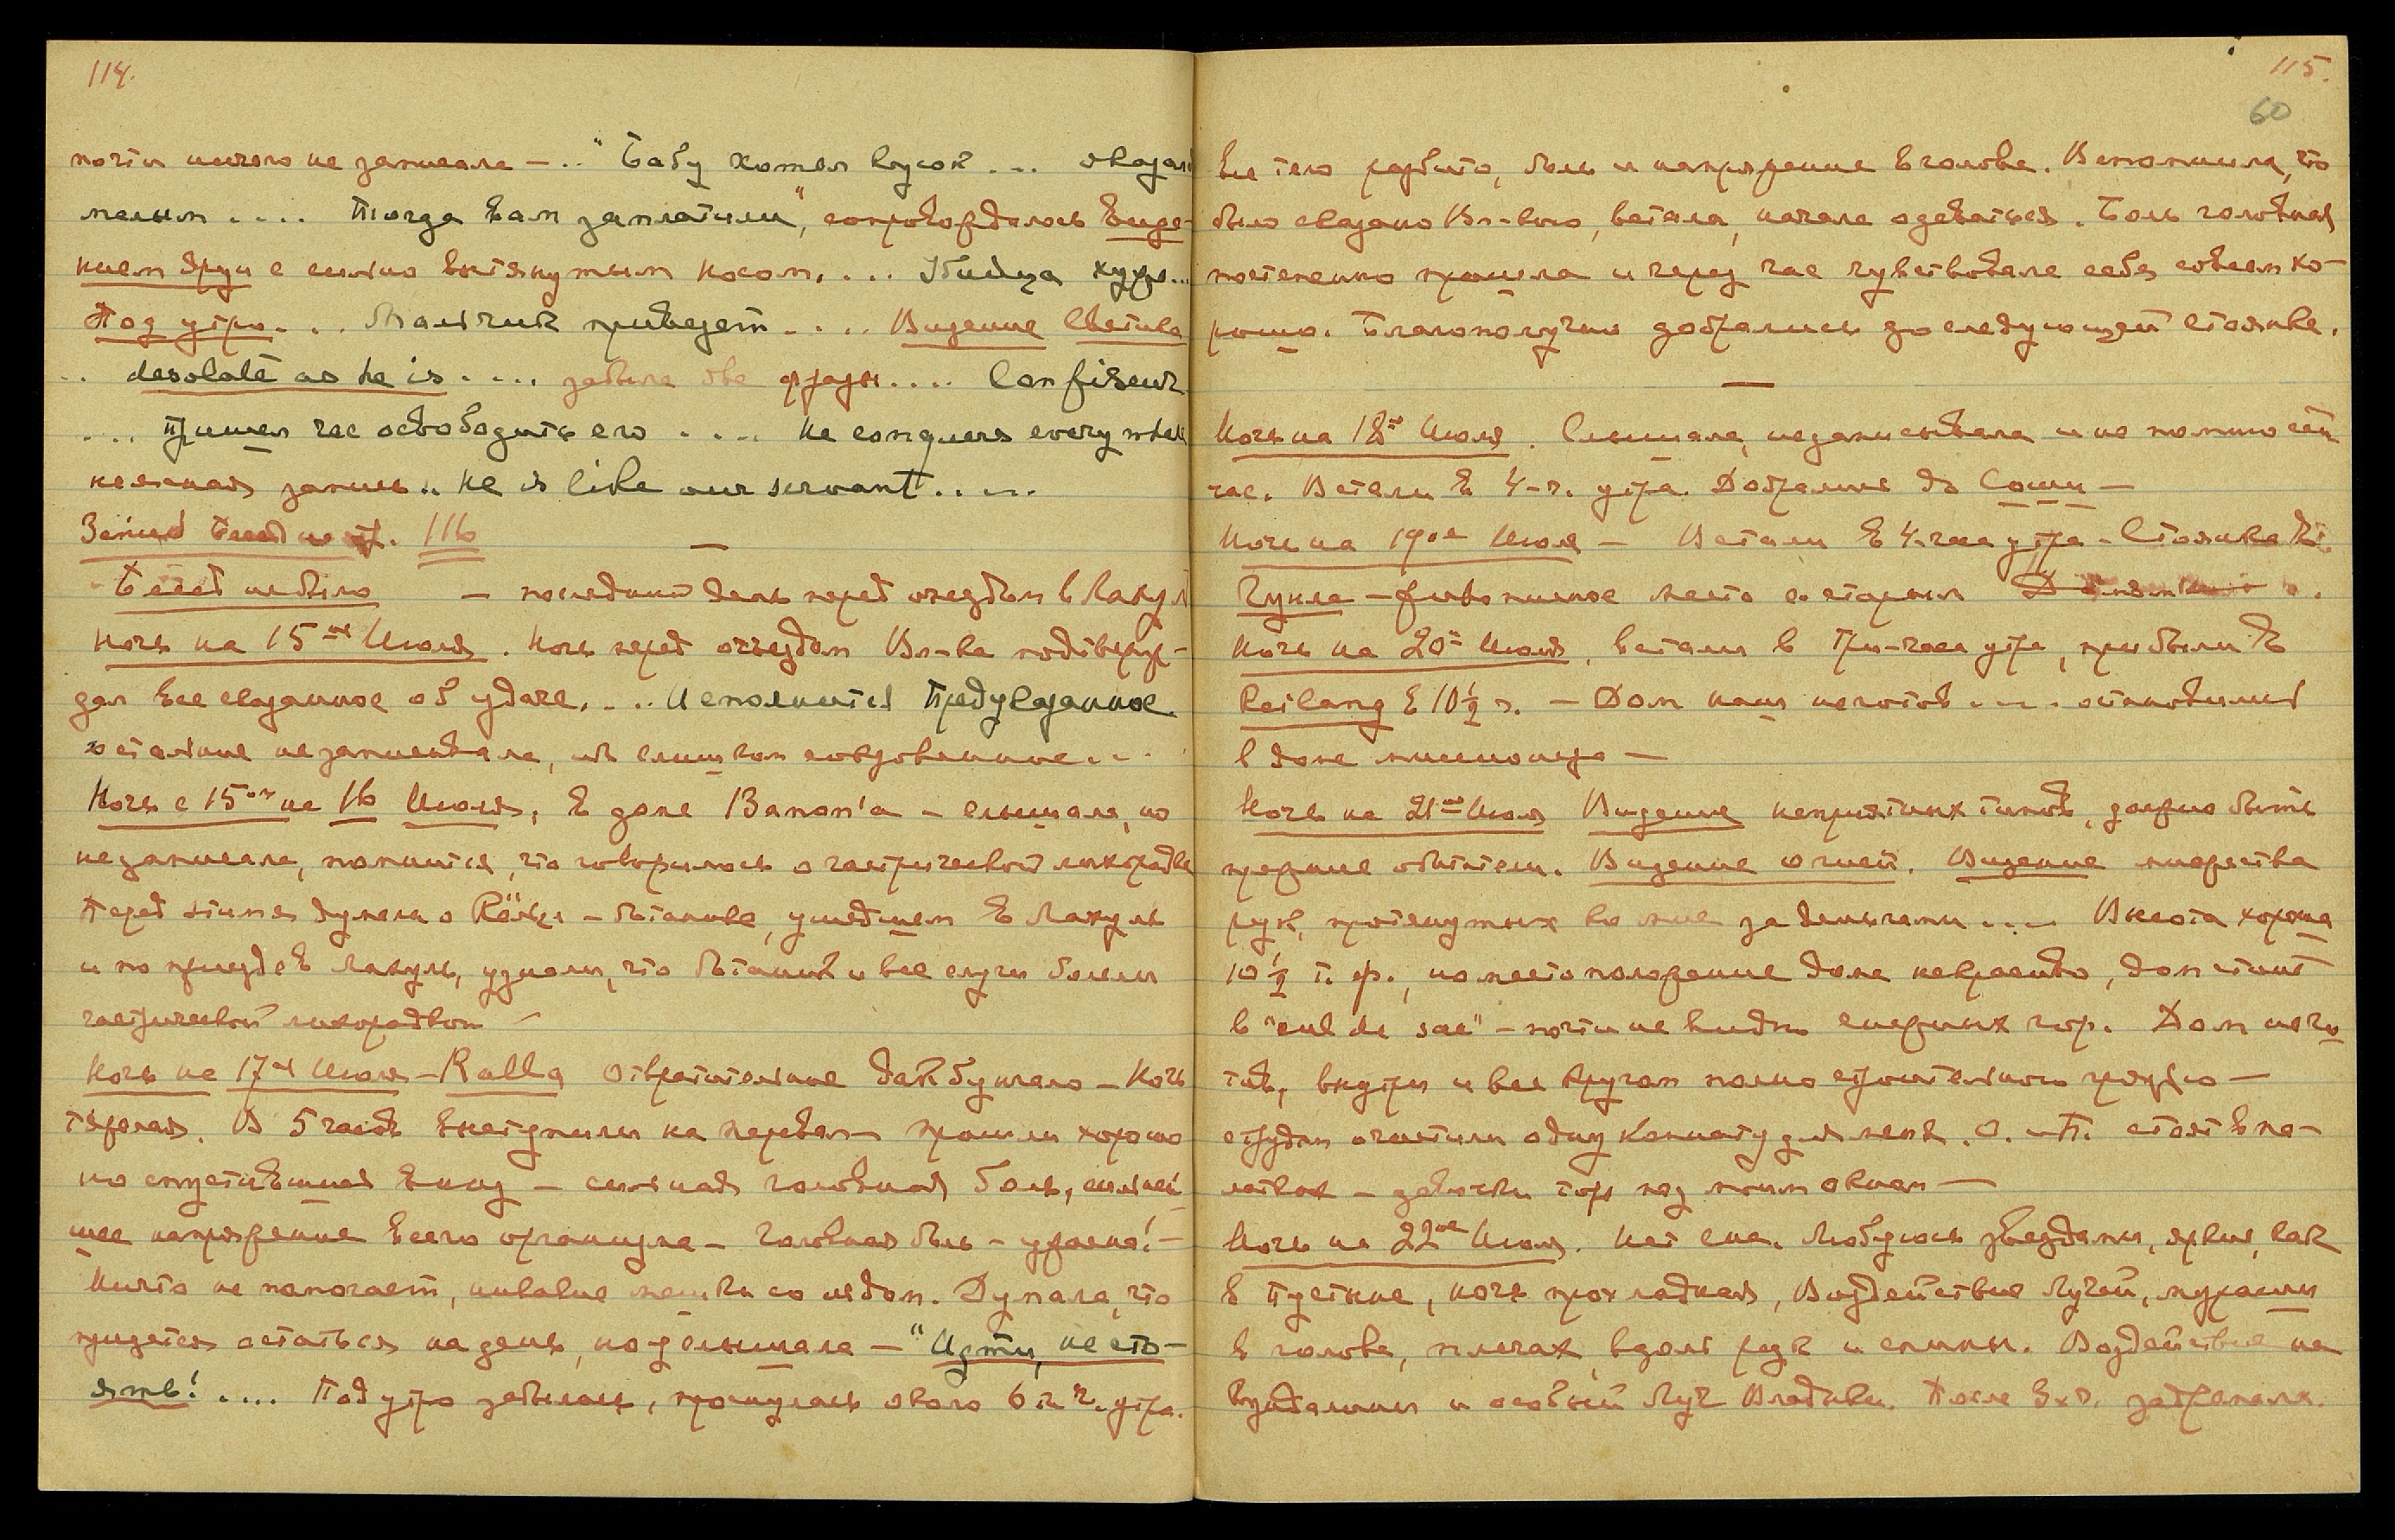 114.
почти ничего не записала — .. "Бабу хотел кусок ... оказал
малым .... Тогда вам заплатили", сопровождалось виде-
нием Яруи с сильно вытянутым носом. ... Убийца худо...
Под утро ... Мальчик приведет .... Видение Светика
.. desolate as he is .... забыла две фразы ....
.... Пришел час освободить его .... He conquers everywhere
неясная запись .. He is like our servant .....
Запись Бесед на стр. 116
Бесед не было — последний день перед отъездом в Лахул
Ночь на 15ое Июля. Ночь перед отъездом Вл-ка подтверж-
дал все сказанное об удаче. ... Исполнится Предуказанное
остальное не записывала, ибо слишком сокровенное ...
Ночь с 15ого на 16 Июля, в доме Banon'a — слышала, но
не записала, помнится, что говорилось о гастрической лихорадке
Перед этим думали о ботанике, ушедшем в Лахуль
и по приезде в Лахуль, узнали, что ботаник и все слуги болели
гастрической лихорадкой —
Ночь на 17ое Июля — Ralla отвратительное дак бунгало — Ночь
тяжелая. В 5 часов выступили на перевал — прошли хорошо
но спустившись вниз — сильная головная боль, сильней-
шее напряжение всего организма — головная боль — ужасна! —
Ничто не помогает, никакие мешки со льдом. Думала, что
придется остаться на день, но услышала — "Идти, не сто-
ять! .... Под утро забылась, проснулась около 6 ти ч. утра.
115.
60
Все тело разбито, боль и напряжение в голове. Вспомнила, что
было сказано Вл-кою, встала, начала одеваться. Боль головная
постепенно прошла и через час чувствовала себя совсем хо-
рошо. Благополучно добрались до следующей стоянки.
—
Ночь на 18ое Июля. Слышала, не записывала и не помню сей-
час. Встали в 4-ч. утра. Добрались до —
Ночь на 19ое Июля — Встали в 4-часа утра. Стоянка в
Гундла — живописное место со старым
Ночь на 20ое Июля, встали в три-часа утра, прибыли в
Keilang в 10½ ч. — Дом наш не готов .... остановились
в доме миссионера —
Ночь на 21ое Июля Видение неприятных типов, должно быть
прежние обитатели. Видение огней. Видение множества
рук, протянутых ко мне за деньгами .... Высота хороша
10½ т. ф., но местоположение дома некрасиво, дом стоит
в "cul de sac" — почти не видно снежных гор. Дом не го-
тов, внутри и все кругом полно строительного мусора —
с трудом очистили одну комнату для меня. О. и П. стоят в па-
латках — девочки тоже под моим окном —
Ночь на 22ое Июля. Нет сна. Любуюсь звездами, яркие, как
в пустыне, ночь прохладная, Воздействие Лучей, мурашки
в голове, плечах, вдоль рук и спины. Воздействие на
Кундалини и особый Луч Владыки. После 3х ч. задремала.